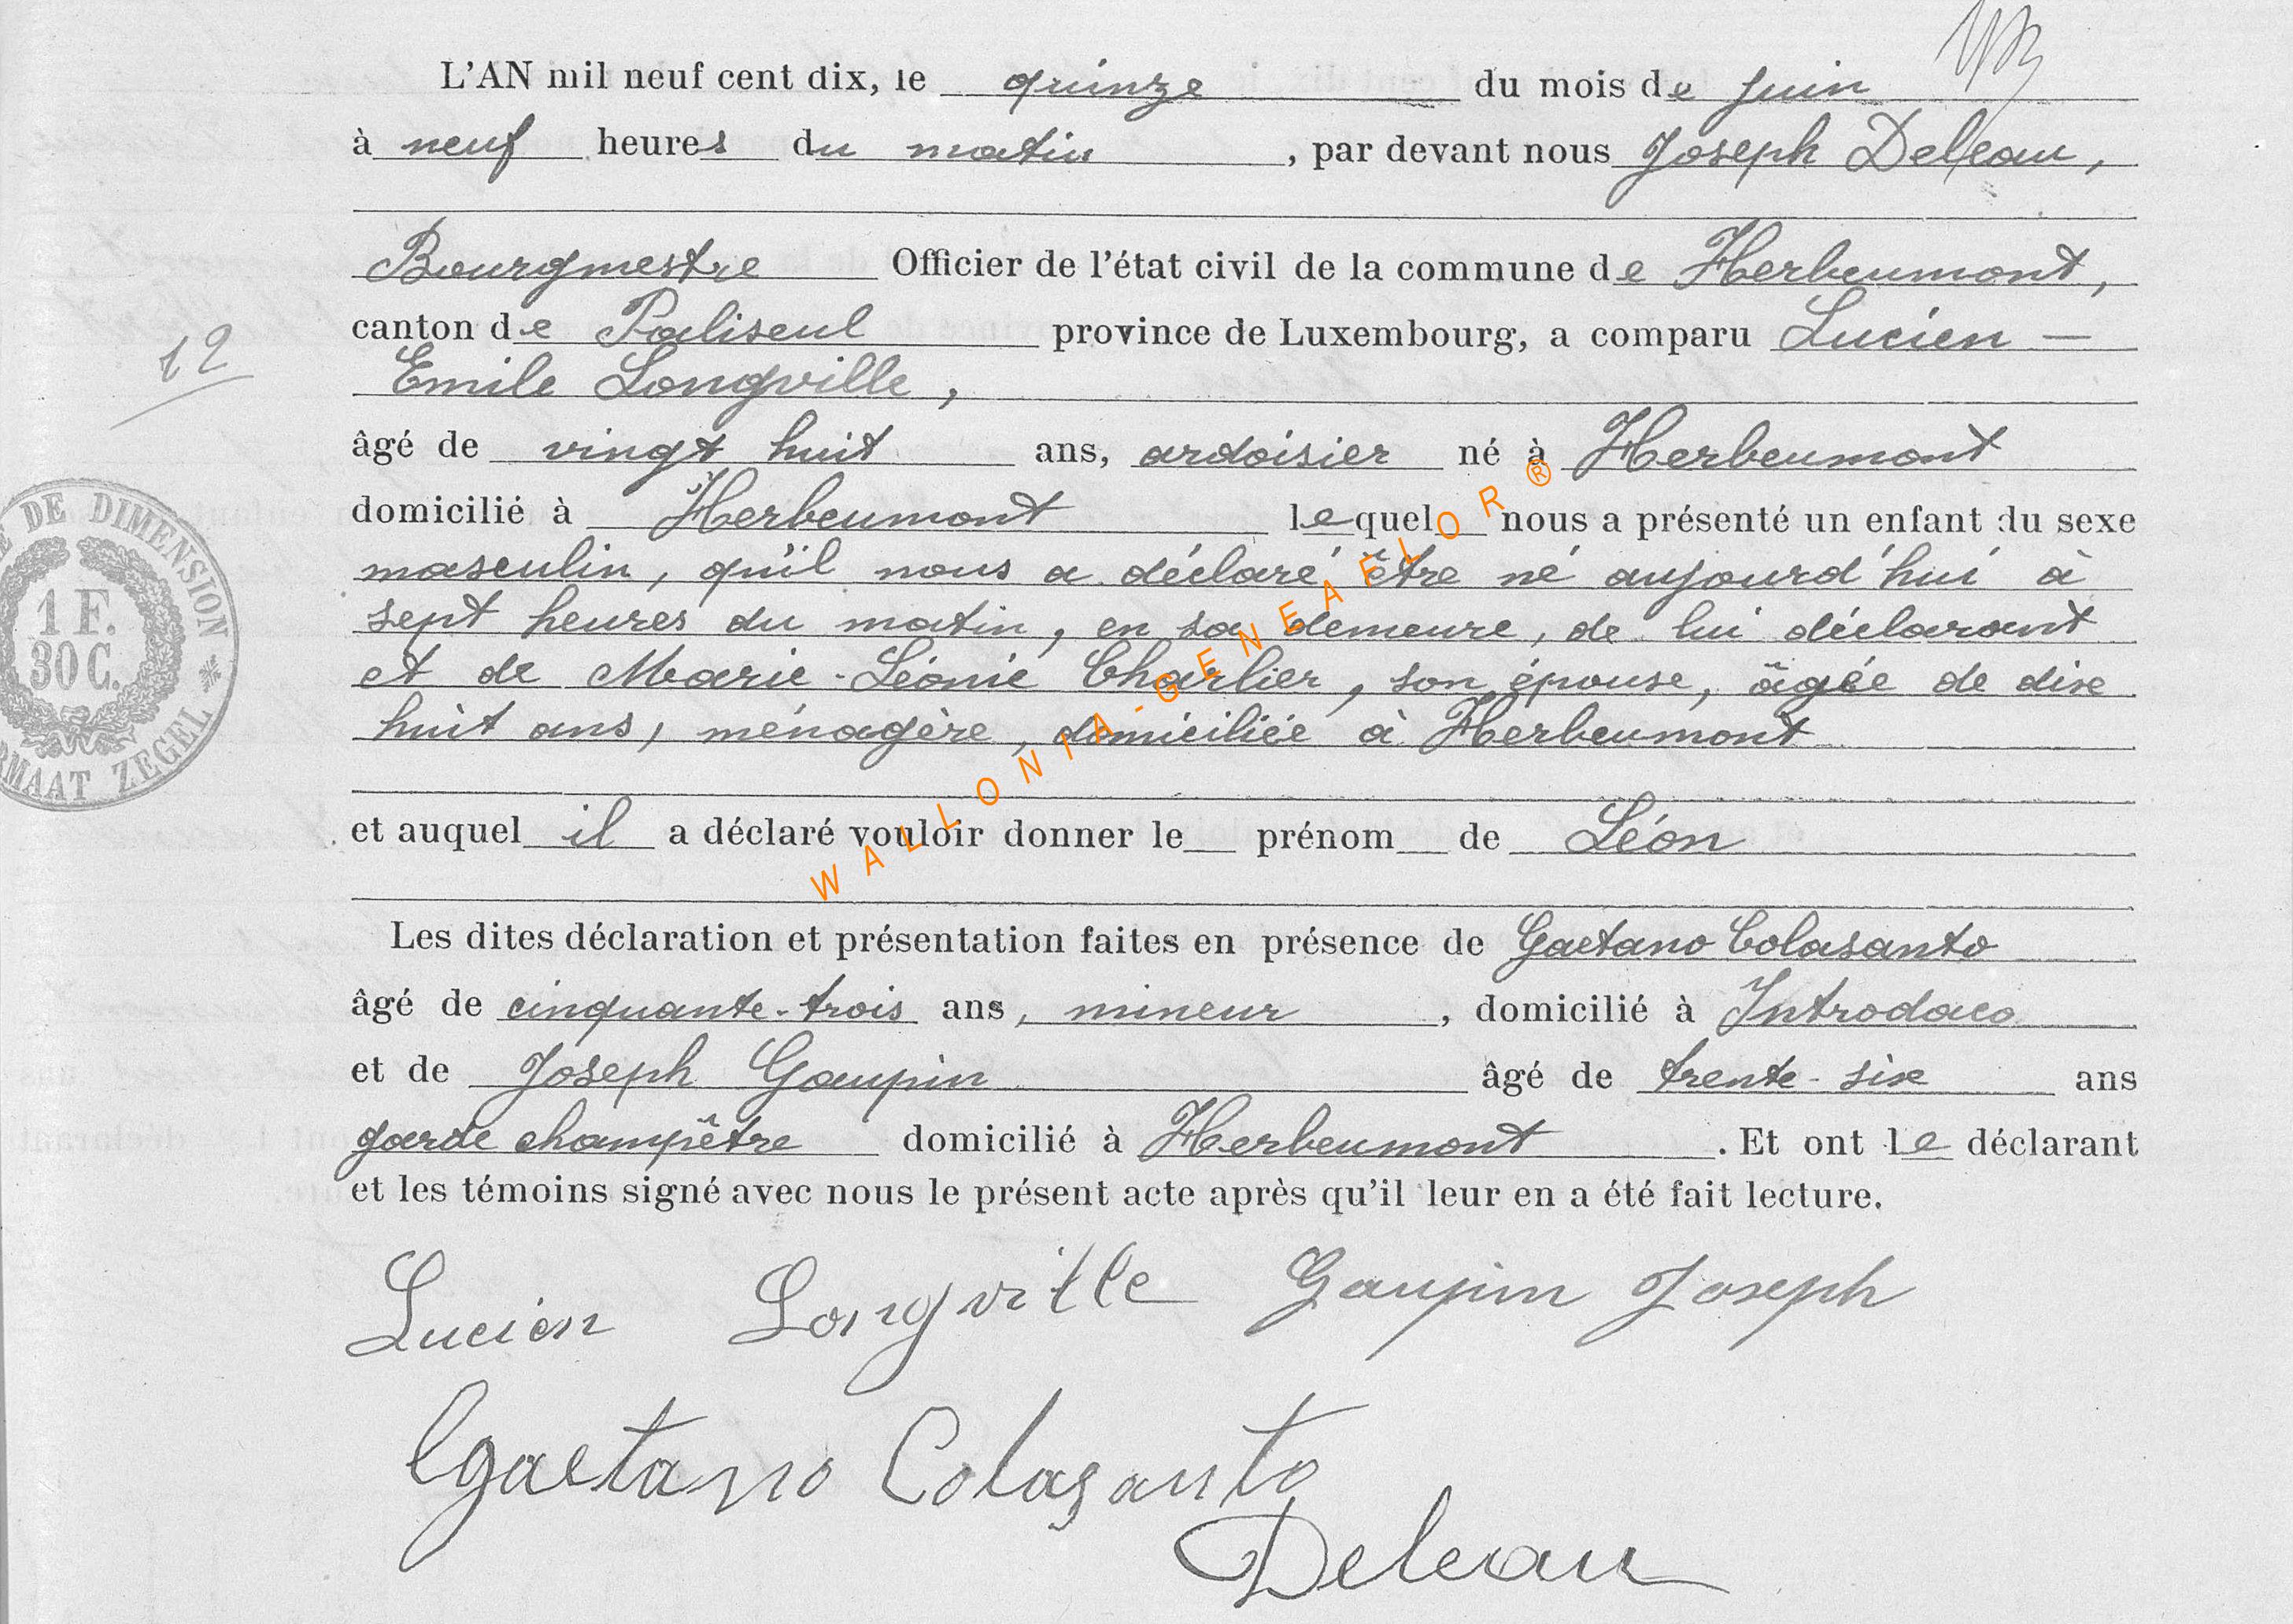 L'AN mil neuf cent dix, le quinze du mois de Juin
à neuf heures du matin, par devant nous Joseph Deleau,
Bourgmestre Officier de l'état civil de la commune de Herbeumont,
canton de Paliseul province de Luxembourg, a comparu Lucien —
Emile Longville,
12
âgé de vingt huit ans, ardoisier né à Herbeumont
domicilié à Herbeumont lequel nous a présenté un enfant du sexe
masculin, qu'il nous a déclaré être né aujourd'hui à
sept heures du matin, en sa demeure, de lui déclarant
et de Marie-Léonie Charlier, son épouse, âgée de dix
huit ans, ménagère, domiciliée à Herbeumont
DE DIMENSION
1 F.
30 C.
MAAT ZEGEL
et auquel il a déclaré vouloir donner le prénom de Léon
WALLONIA-GENEAFLOR ®
Les dites déclaration et présentation faites en présence de Gaetano Colasanto
âgé de cinquante-trois ans, mineur, domicilié à Introdaco
et de Joseph Gaupin âgé de trente-six ans
garde champêtre domicilié à Herbeumont. Et ont le déclarant
et les témoins signé avec nous le présent acte après qu'il leur en a été fait lecture.
Lucien Longville Gaupin Joseph
Gaetano Colasanto
Deleau